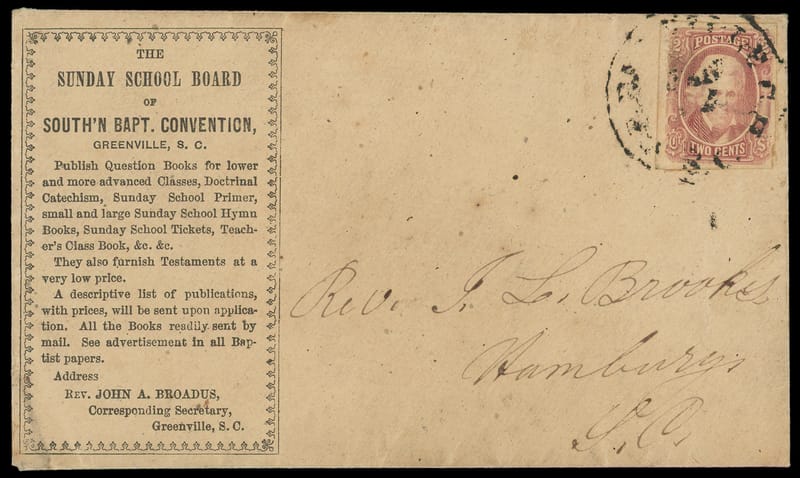 THE
SUNDAY SCHOOL BOARD
OF
SOUTH'N BAPT. CONVENTION,
GREENVILLE, S. C.
Publish Question Books for lower
and more advanced Classes, Doctrinal
Catechism, Sunday School Primer,
small and large Sunday School Hymn
Books, Sunday School Tickets, Teach-
er's Class Book, &c. &c.
They also furnish Testaments at a
very low price.
A descriptive list of publications,
with prices, will be sent upon applica-
tion. All the Books readily sent by
mail. See advertisement in all Bap-
tist papers.
Address
REV. JOHN A. BROADUS,
Corresponding Secretary,
Greenville, S. C.
POSTAGE
TWO CENTS
Rev. J. L. Brooks
Hamburg
S. C.